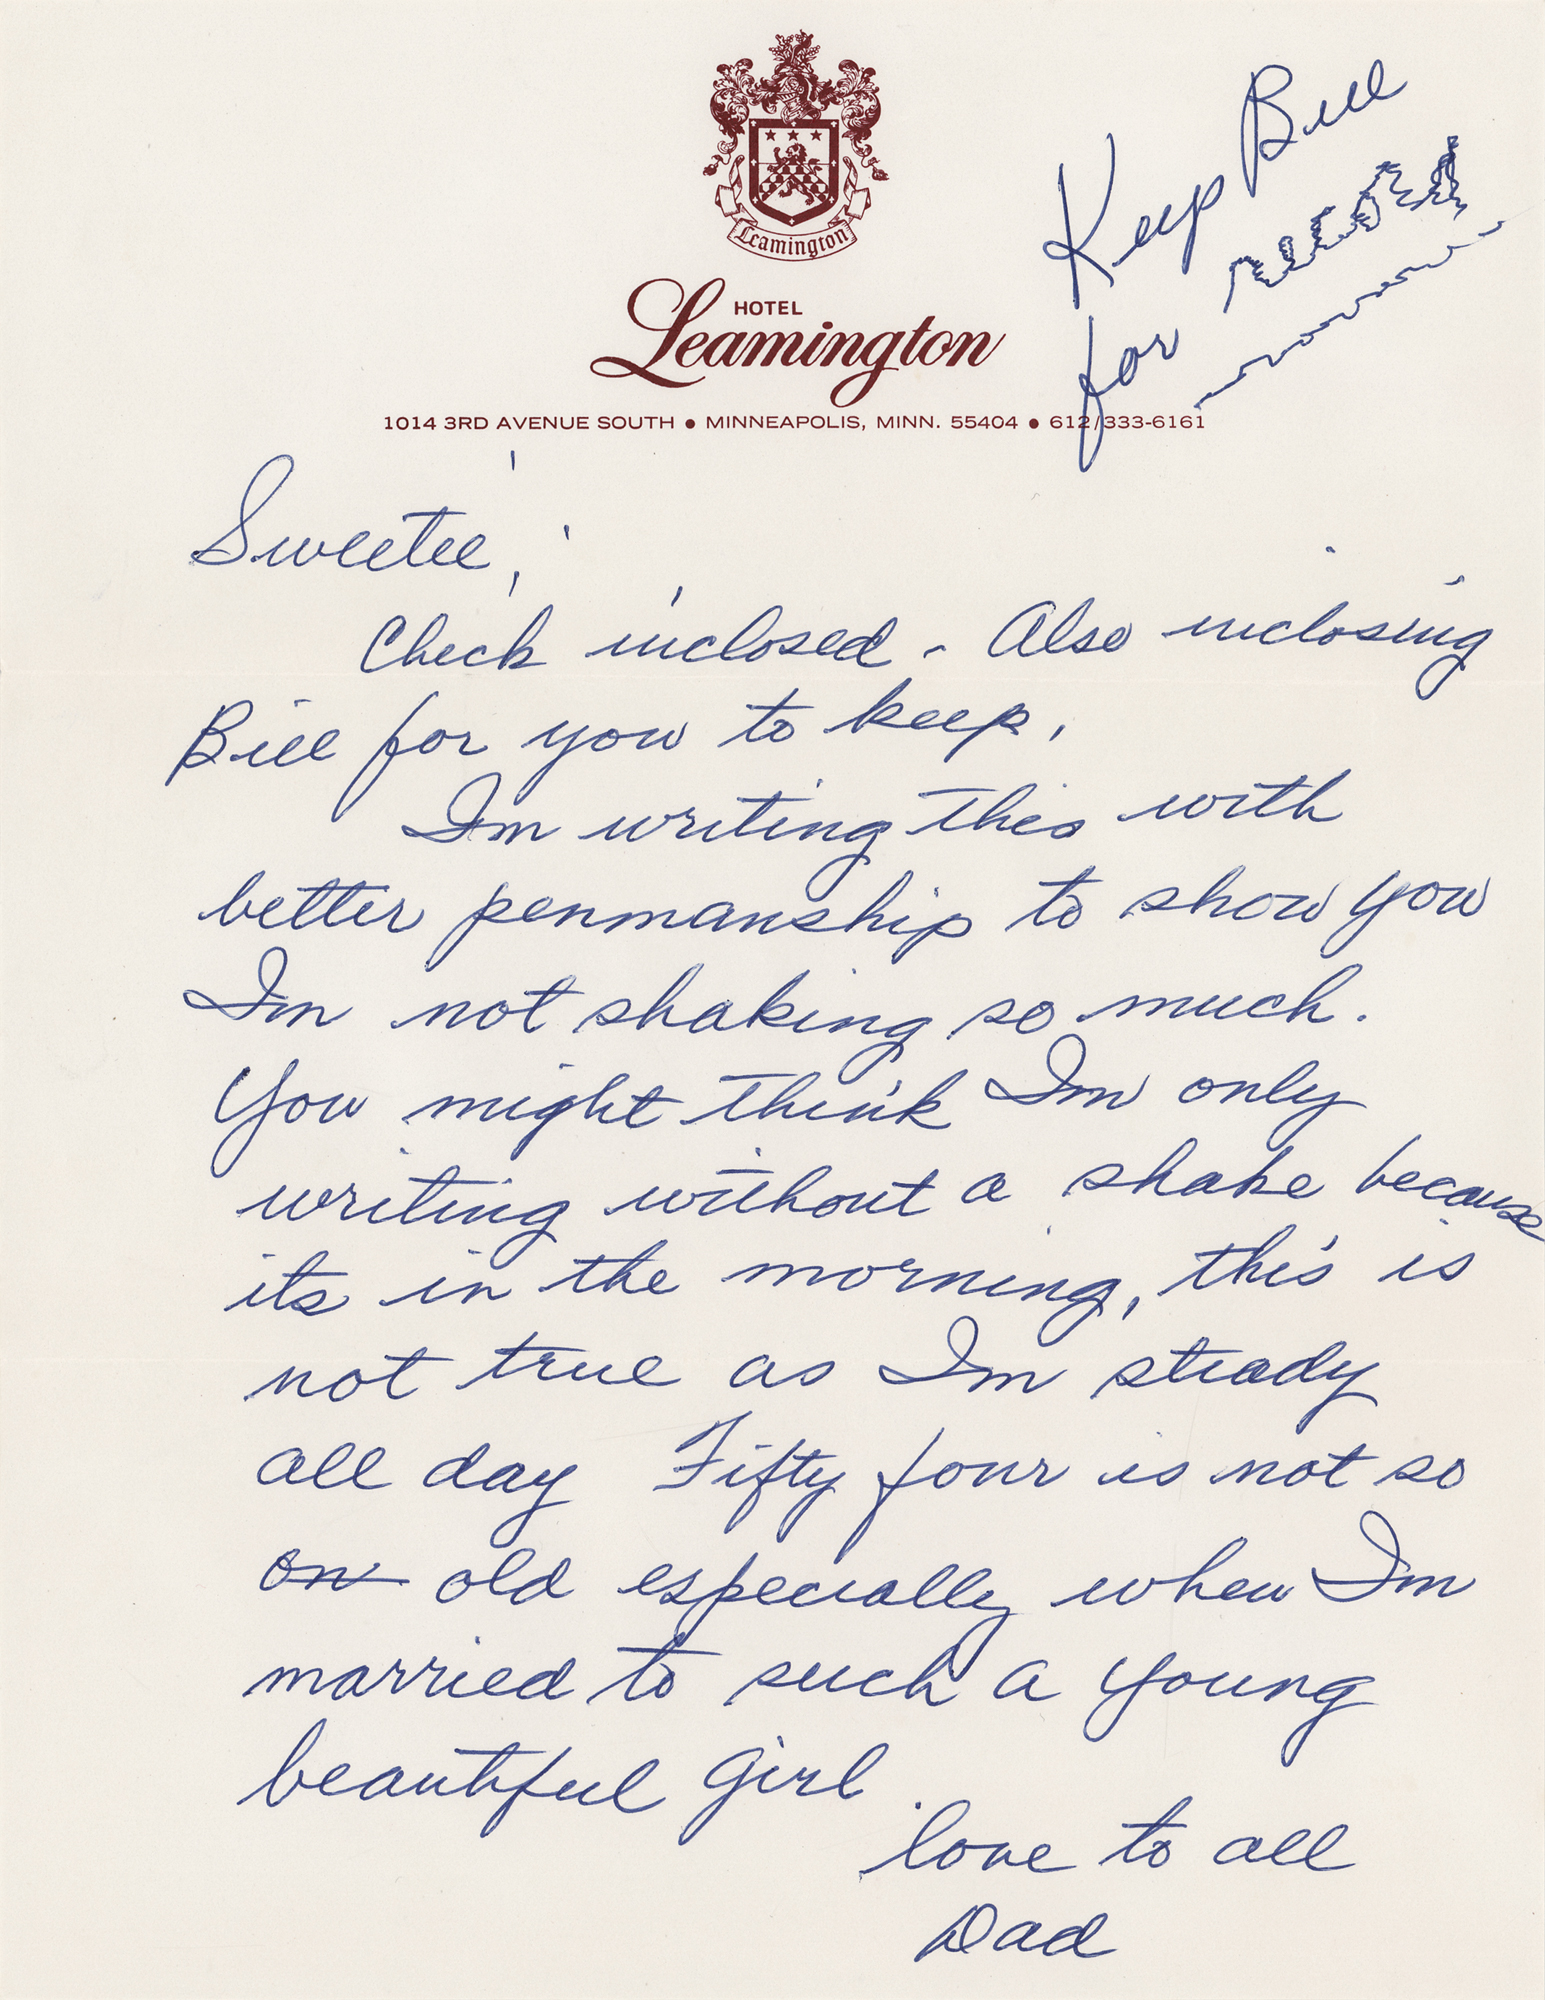 Leamington
HOTEL
Leamington
1014 3RD AVENUE SOUTH • MINNEAPOLIS, MINN. 55404 • 612/333-6161
Keep Bill
for record
Sweetee,
Check inclosed - Also inclosing
Bill for you to keep,
Im writing this with
better penmanship to show you
Im not shaking so much.
You might think Im only
writing without a shake because
its in the morning, this is
not true as Im steady
all day Fifty four is not so
on old especially when Im
married to such a young
beautiful girl.
love to all
Dad